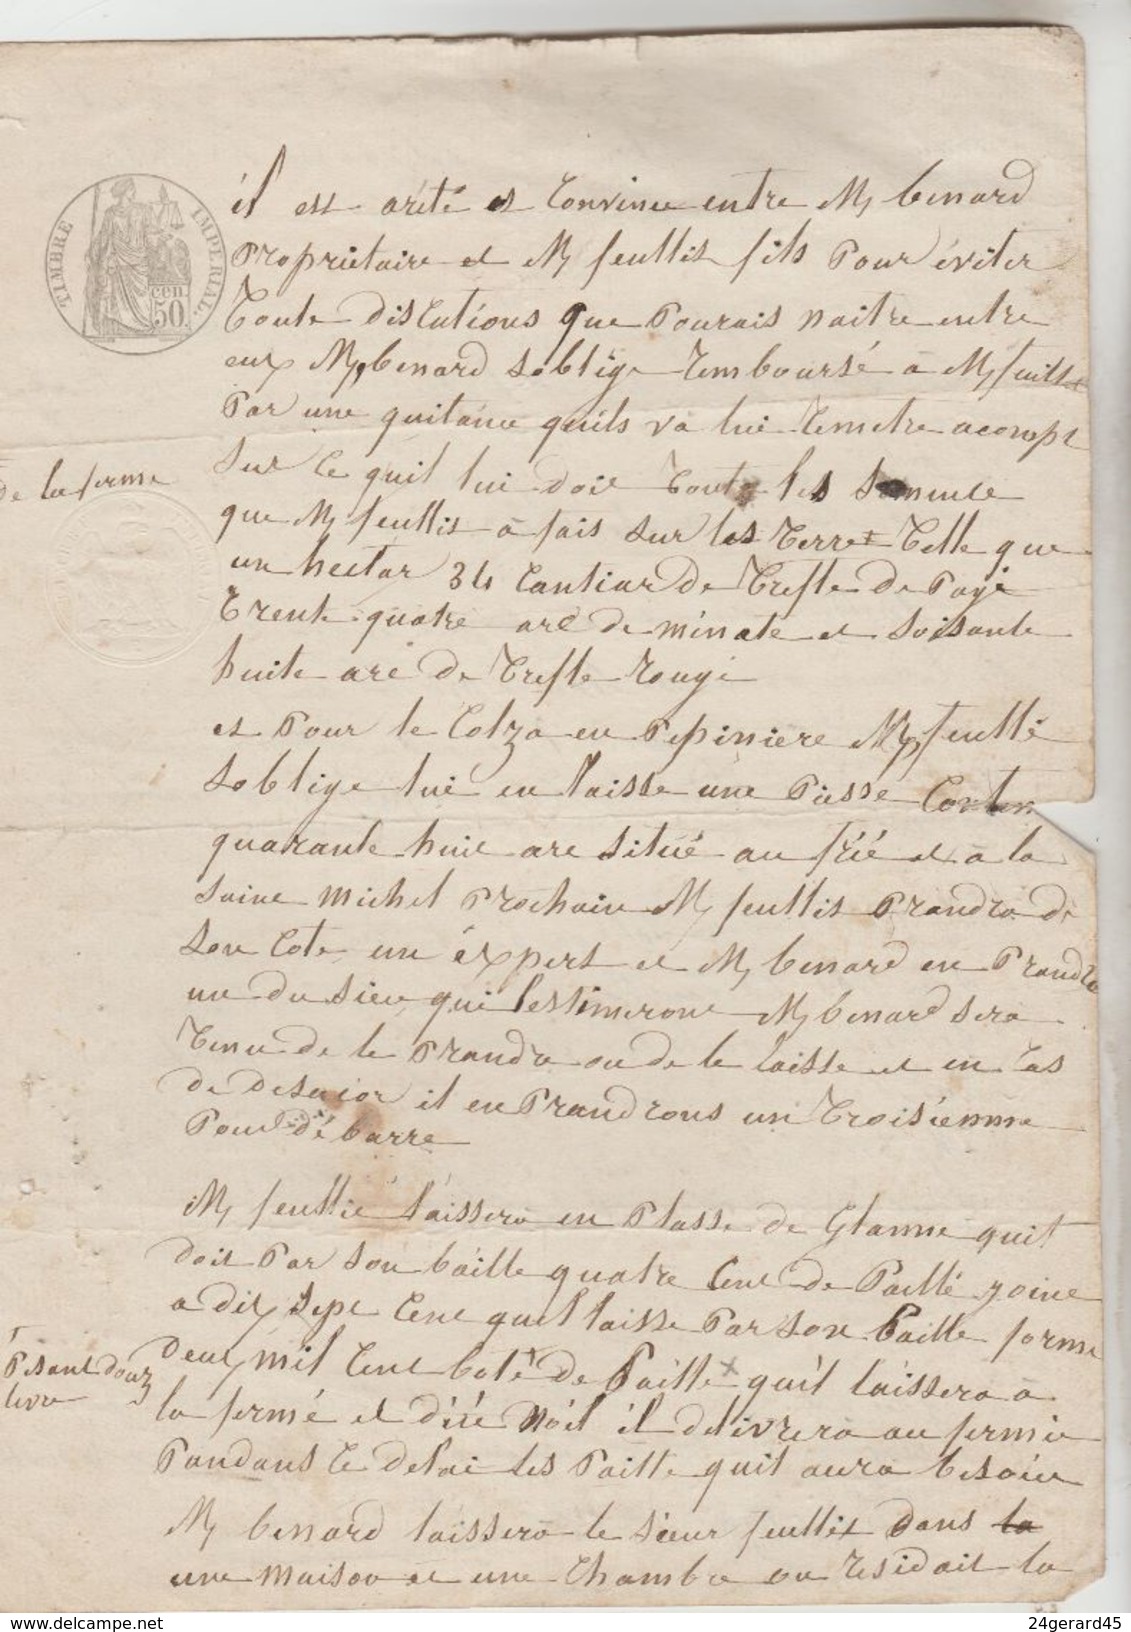 TIMBRE IMPERIAL.
cen. 50.
il est arété et Convinu entre M, benard
Proprietaire et M, feullis fils Pour éviter
Toute discutions que Pourais naitre entre
eux M, benard soblige remboursé a M, feuill
Par une quitance quils va lui remetre acompt
Sur Ce quil lui doit Toute les Somme
que M, feullis a fais sur les Terre Telle que
un hectar 34 Cantiar de Trefle de Pays
Trente quatre are de minete et soisante
huite are de Trefle rouge
et Pour le Colza en Pepiniere M, feullé
soblige lui en laisse une Piesse Conten
quarante huit are situé au frié et a la
saine michel Prochain M, feullis Prandra de
son Cote un éxpert et M, benard en Prandra
un du sien qui lestimeront M, benard sera
Tenu de le Prandre ou de le laisse et en Cas
de desacor il en Prandrons un Troisiemme
Pour débarre
de la ferme
M, feullié laissera en Plasse de Glanne quil
doit Par son baille quatre Cent de Paille joint
a dix sept Cent quil laisse Par son Baille forme
deux mil Cent bote de Paille quil laissera a
la ferme et dici Noil il delivrera au fermie
Pandant le delai les Paille quil aura besoin
Pesant douz
livre
M, benard laissera le sieur feullis dans la
une maison et une Chambre ou residait la
24gerard45